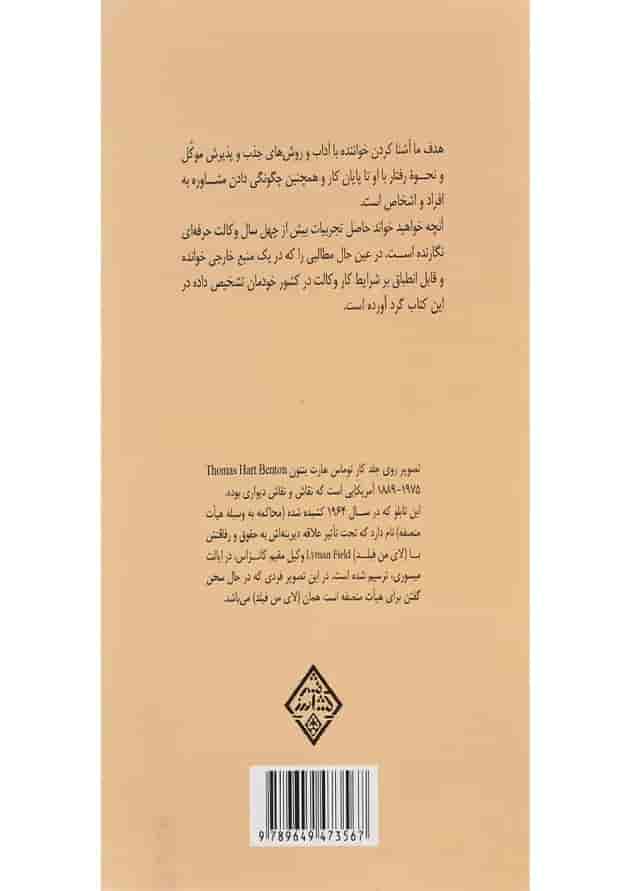 هدف ما آشنا کردن خواننده با آداب و روش‌های جذب و پذیرش موکّل
و نحوۀ رفتار با او تا پایان کار و همچنین چگونگی دادن مشاوره به
افراد و اشخاص است.
آنچه خواهید خواند حاصل تجربیات بیش از چهل سال وکالت حرفه‌ای
نگارنده است. در عین حال مطالبی را که در یک منبع خارجی خوانده
و قابل انطباق بر شرایط کار وکالت در کشور خودمان تشخیص داده در
این کتاب گرد آورده است.
تصویر روی جلد کار توماس هارت بنتون Thomas Hart Benton
۱۸۸۹-۱۹۷۵ آمریکایی است که نقاش و نقاش دیواری بوده.
این تابلو که در سال ۱۹۶۴ کشیده شده (محاکمه به وسیله هیأت
منصفه) نام دارد که تحت تأثیر علاقه دیرینه‌اش به حقوق و رفاقتش
با (لای من فیلد) Lyman Field وکیل مقیم کانزاس، در ایالت
میسوری، ترسیم شده است. در این تصویر فردی که در حال سخن
گفتن برای هیأت منصفه است همان (لای من فیلد) می‌باشد.
9 789649 473567